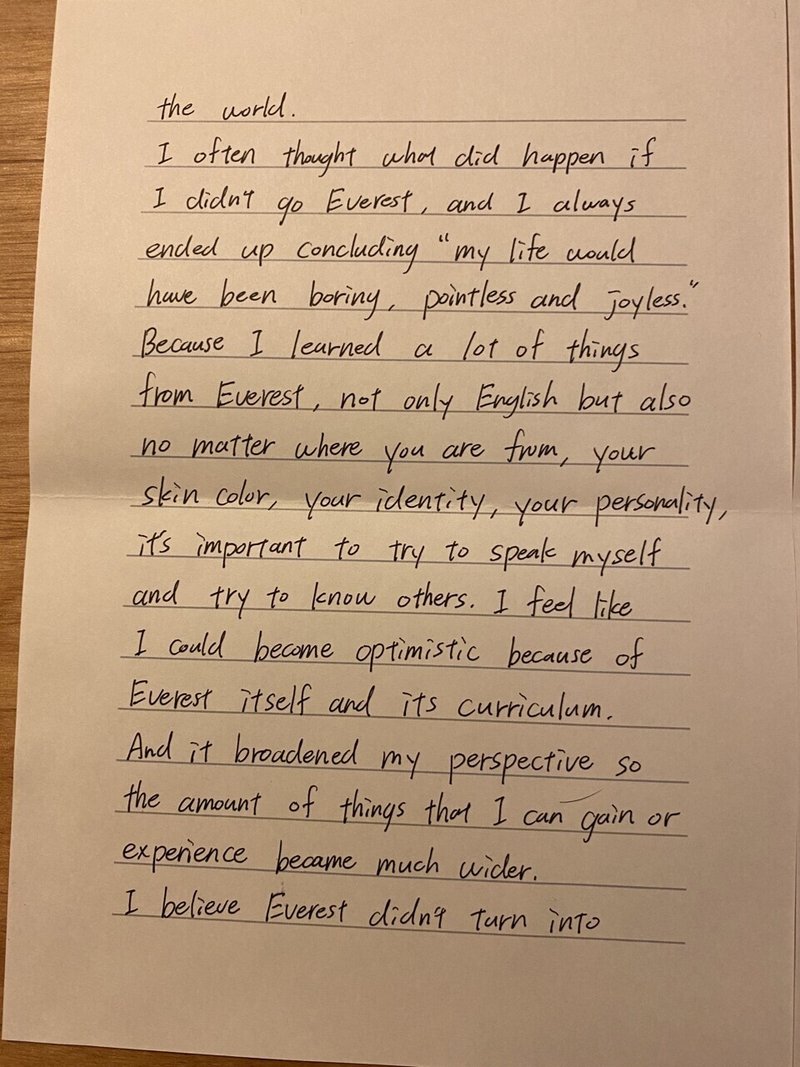 the world.
I often thought what did happen if
I didn't go Everest, and I always
ended up concluding "my life would
have been boring, pointless and joyless."
Because I learned a lot of things
from Everest, not only English but also
no matter where you are from, your
skin color, your identity, your personality,
it's important to try to speak myself
and try to know others. I feel like
I could become optimistic because of
Everest itself and its curriculum.
And it broadened my perspective so
the amount of things that I can gain or
experience became much wider.
I believe Everest didn't turn into